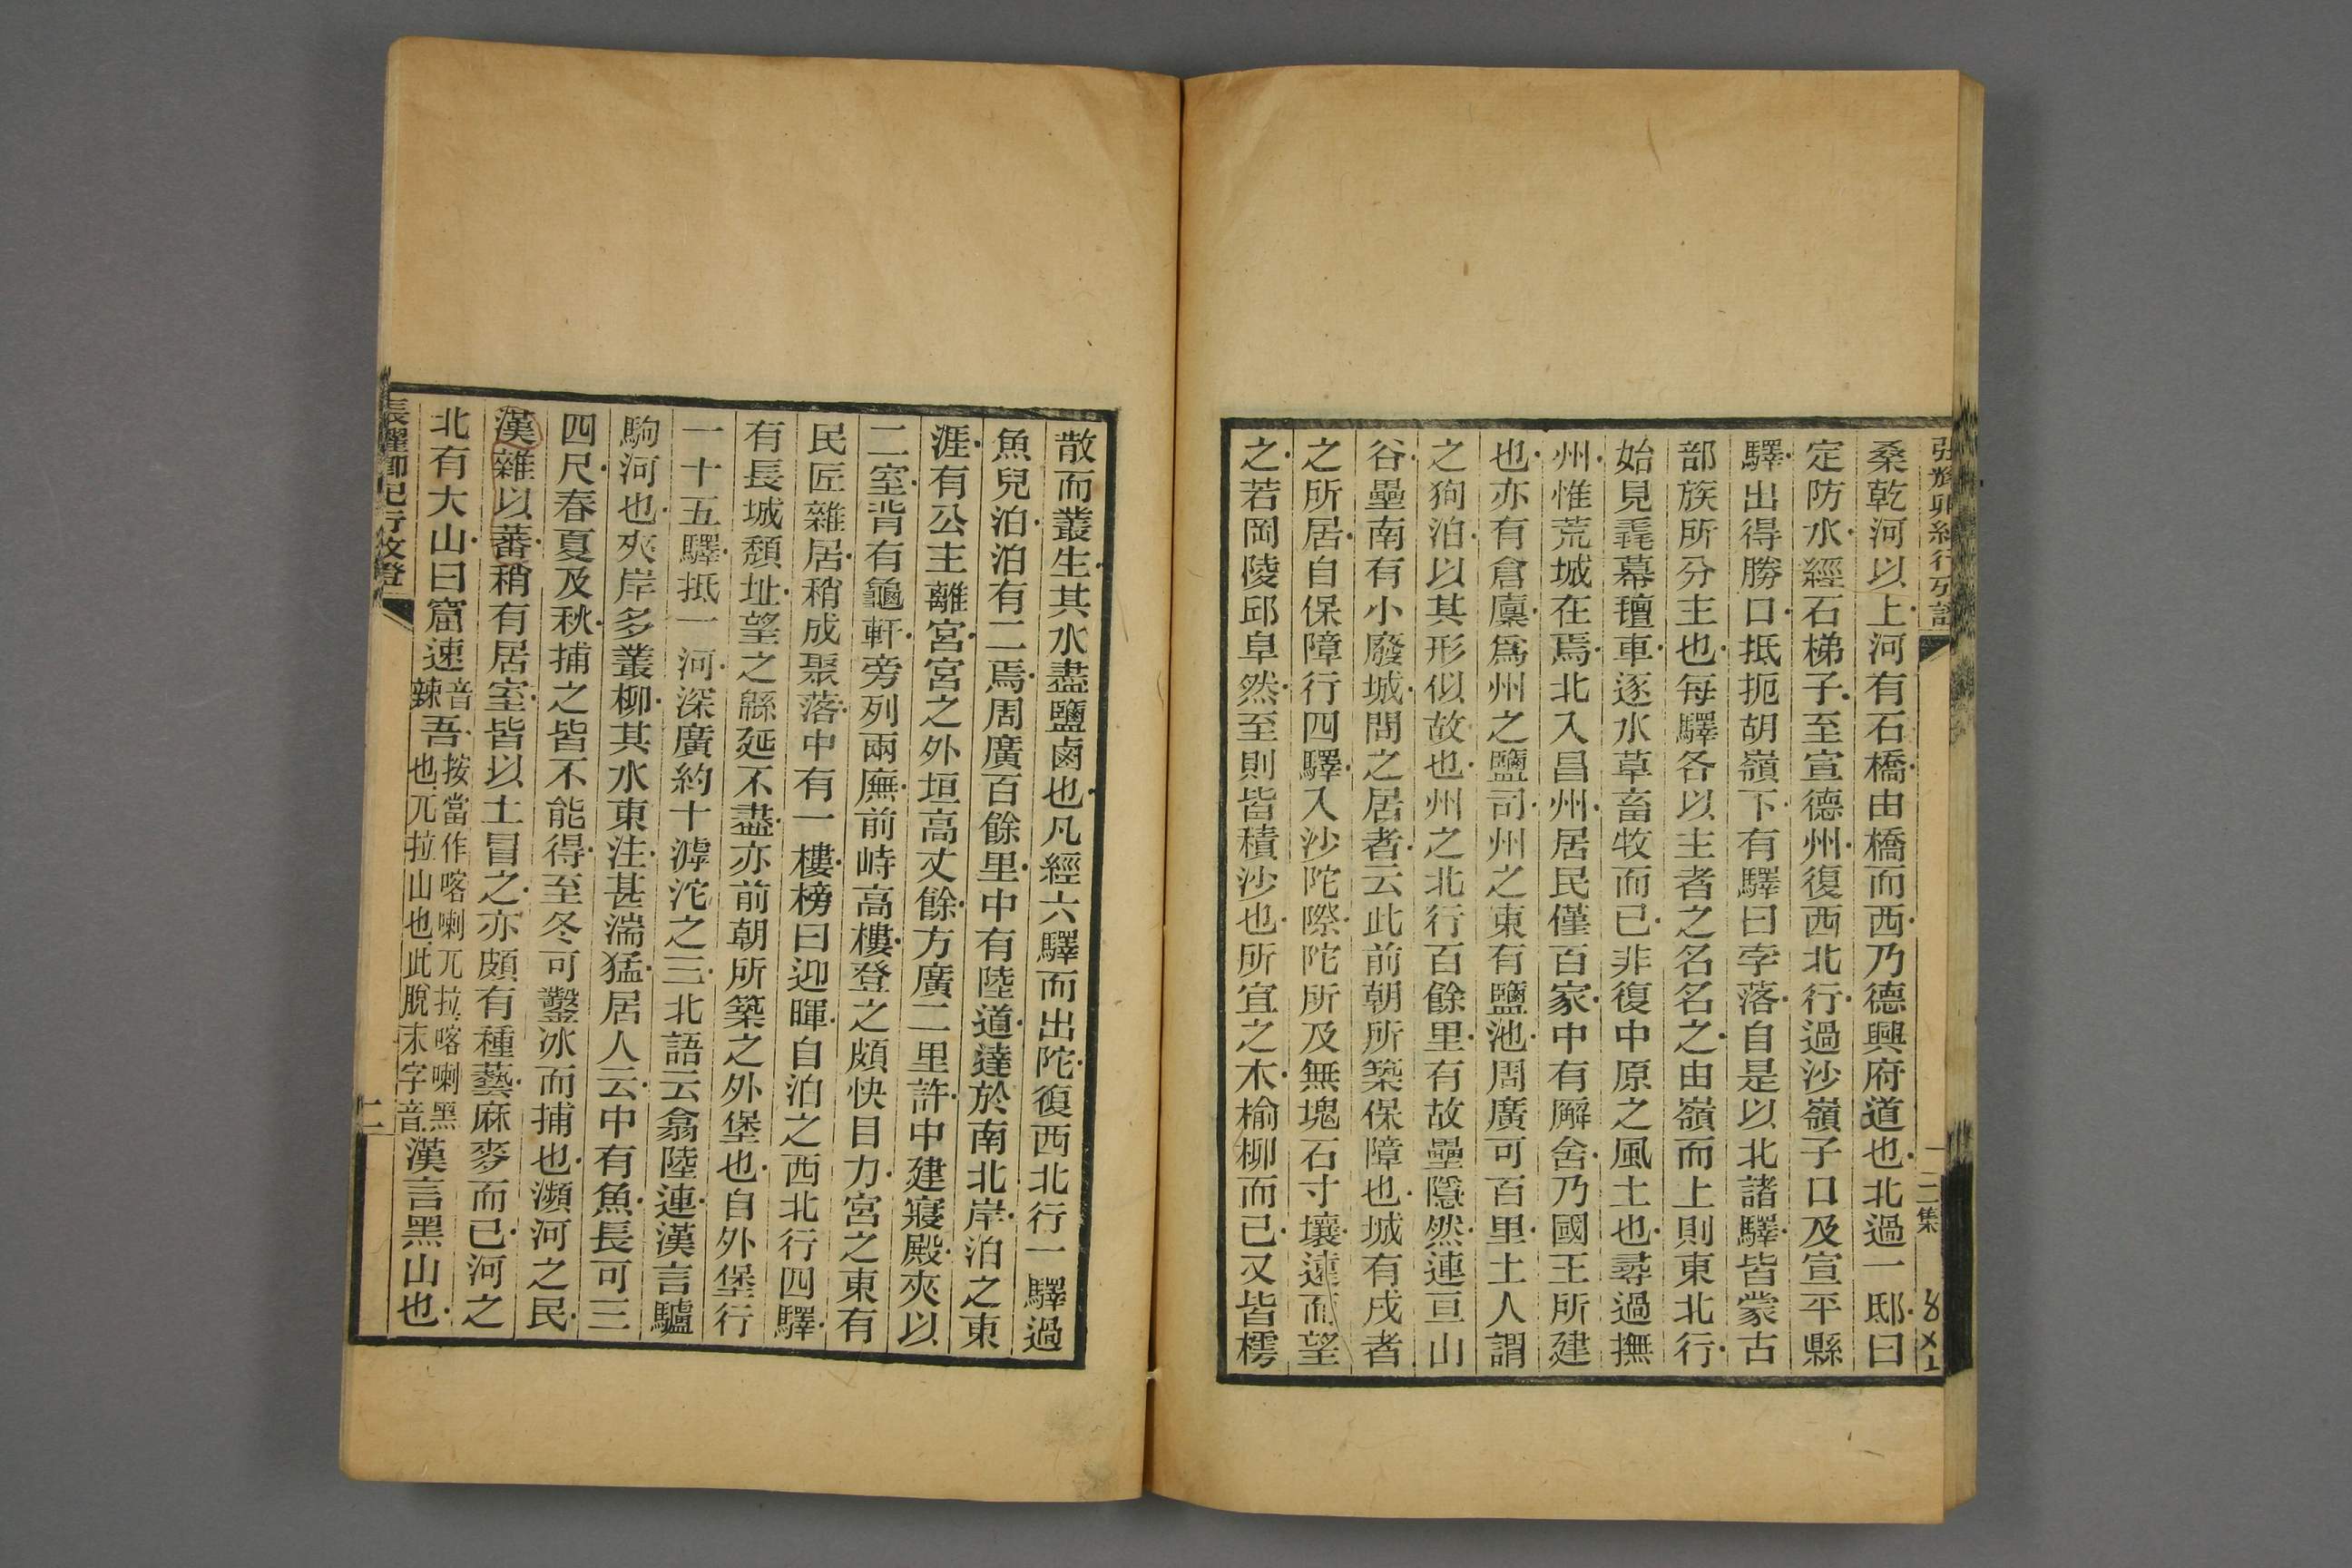 桑乾河以上河有石橋由橋而西乃德興府道也北過一邸曰
定防水經石梯子至宣德州復西北行過沙嶺子口及宣平縣
驛出得勝口抵扼胡嶺下有驛曰孛落自是以北諸驛皆蒙古
部族所分主也每驛各以主者之名名之由嶺而上則東北行
始見毳幕氊車逐水草畜牧而已非復中原之風土也尋過撫
州惟荒城在焉北入昌州居民僅百家中有廨舍乃國王所建
也亦有倉廩爲州之鹽司州之東有鹽池周廣可百里土人謂
之狗泊以其形似故也州之北行百餘里有故壘隱然連亘山
谷壘南有小廢城問之居者云此前朝所築保障也城有戍者
之所居自保障行四驛入沙陀際陀所及無塊石寸壤遠而望
之若岡陵邱阜然至則皆積沙也所宜之木榆柳而已又皆樗
散而叢生其水盡鹽鹵也凡經六驛而出陀復西北行一驛過
魚兒泊泊有二焉周廣百餘里中有陸道達於南北岸泊之東
涯有公主離宮宮之外垣高丈餘方廣二里許中建寢殿夾以
二室背有龜軒旁列兩廡前峙高樓登之頗快目力宮之東有
民匠雜居稍成聚落中有一樓榜曰迎暉自泊之西北行四驛
有長城頹址望之緜延不盡亦前朝所築之外堡也自外堡行
一十五驛抵一河深廣約十滹沱之三北語云翕陸連漢言驢
駒河也夾岸多叢柳其水東注甚湍猛居人云中有魚長可三
四尺春夏及秋捕之皆不能得至冬可鑿冰而捕也瀕河之民
漢雜以蕃稍有居室皆以土冒之亦頗有種藝麻麥而已河之
北有大山曰窟速音辣吾按當作喀喇兀拉喀喇黑也兀拉山也此脫末字音漢言黑山也
張耀卿紀行攷證
二
二集